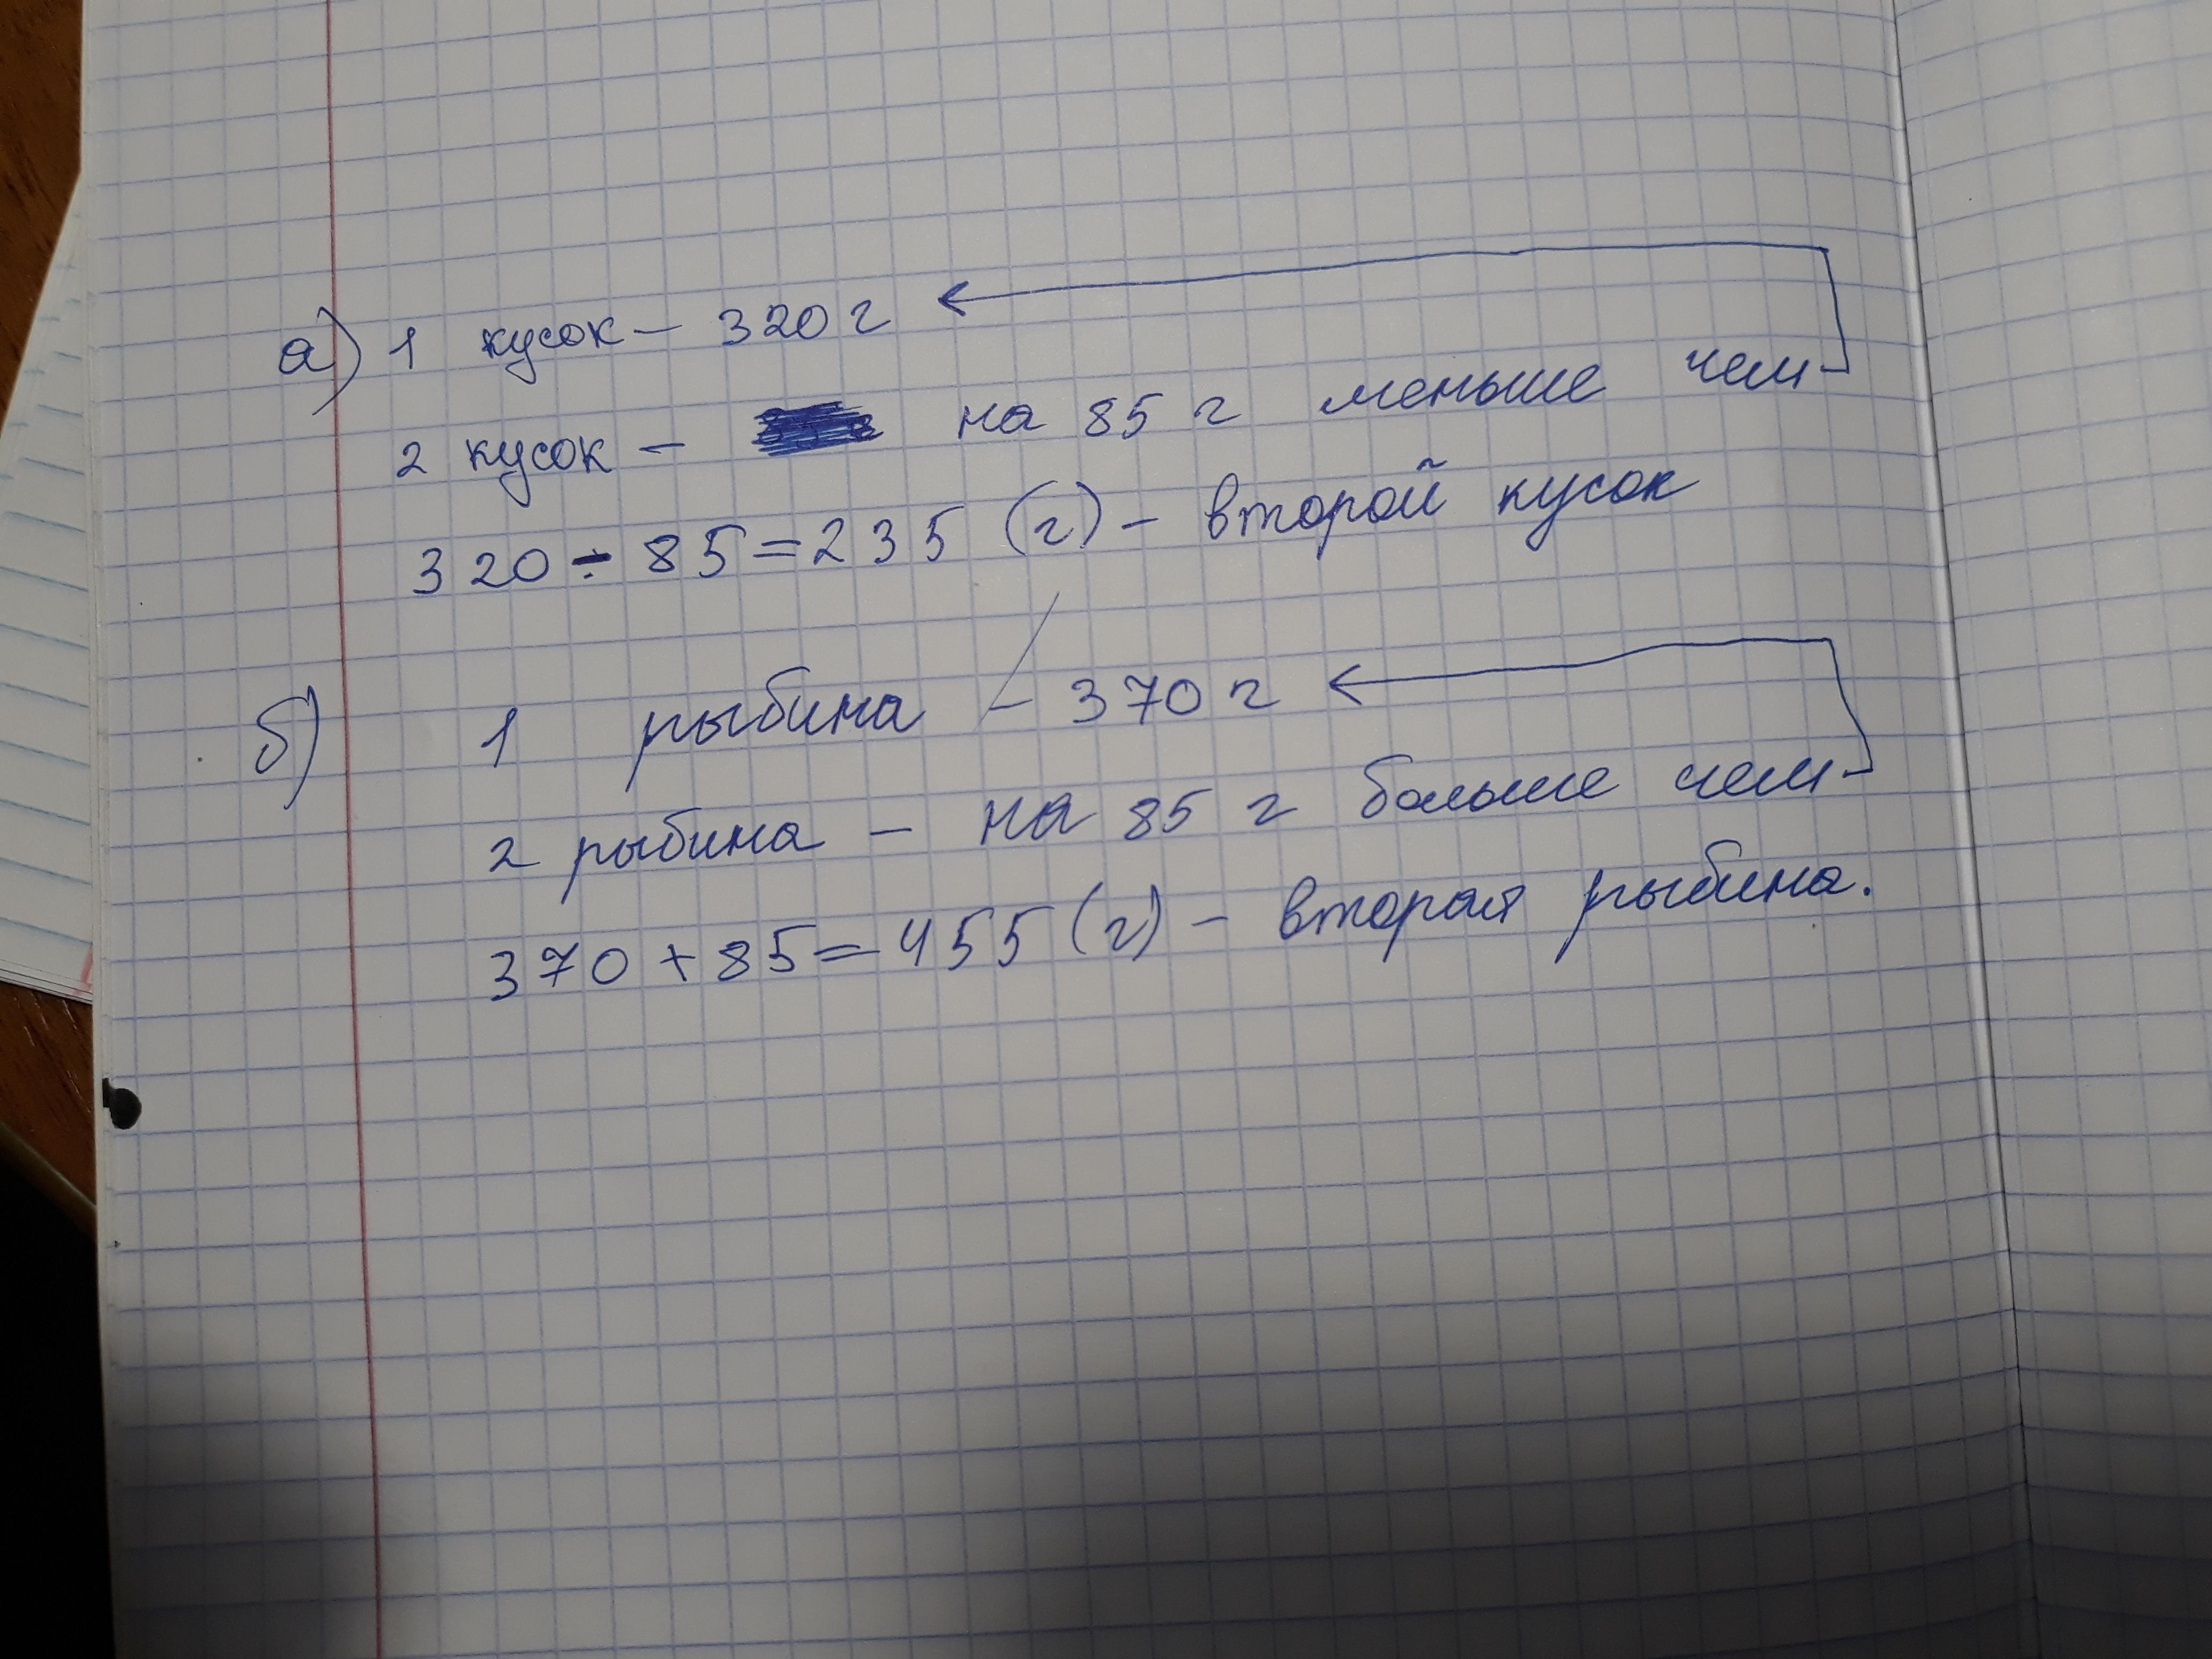 а) 1 кусок – 320 г
2 кусок – на 85 г меньше чем
320 ÷ 85 = 235 (г) – второй кусок
б) 1 рыбина – 370 г
2 рыбина – на 85 г больше чем
370 + 85 = 455 (г) – вторая рыбина.